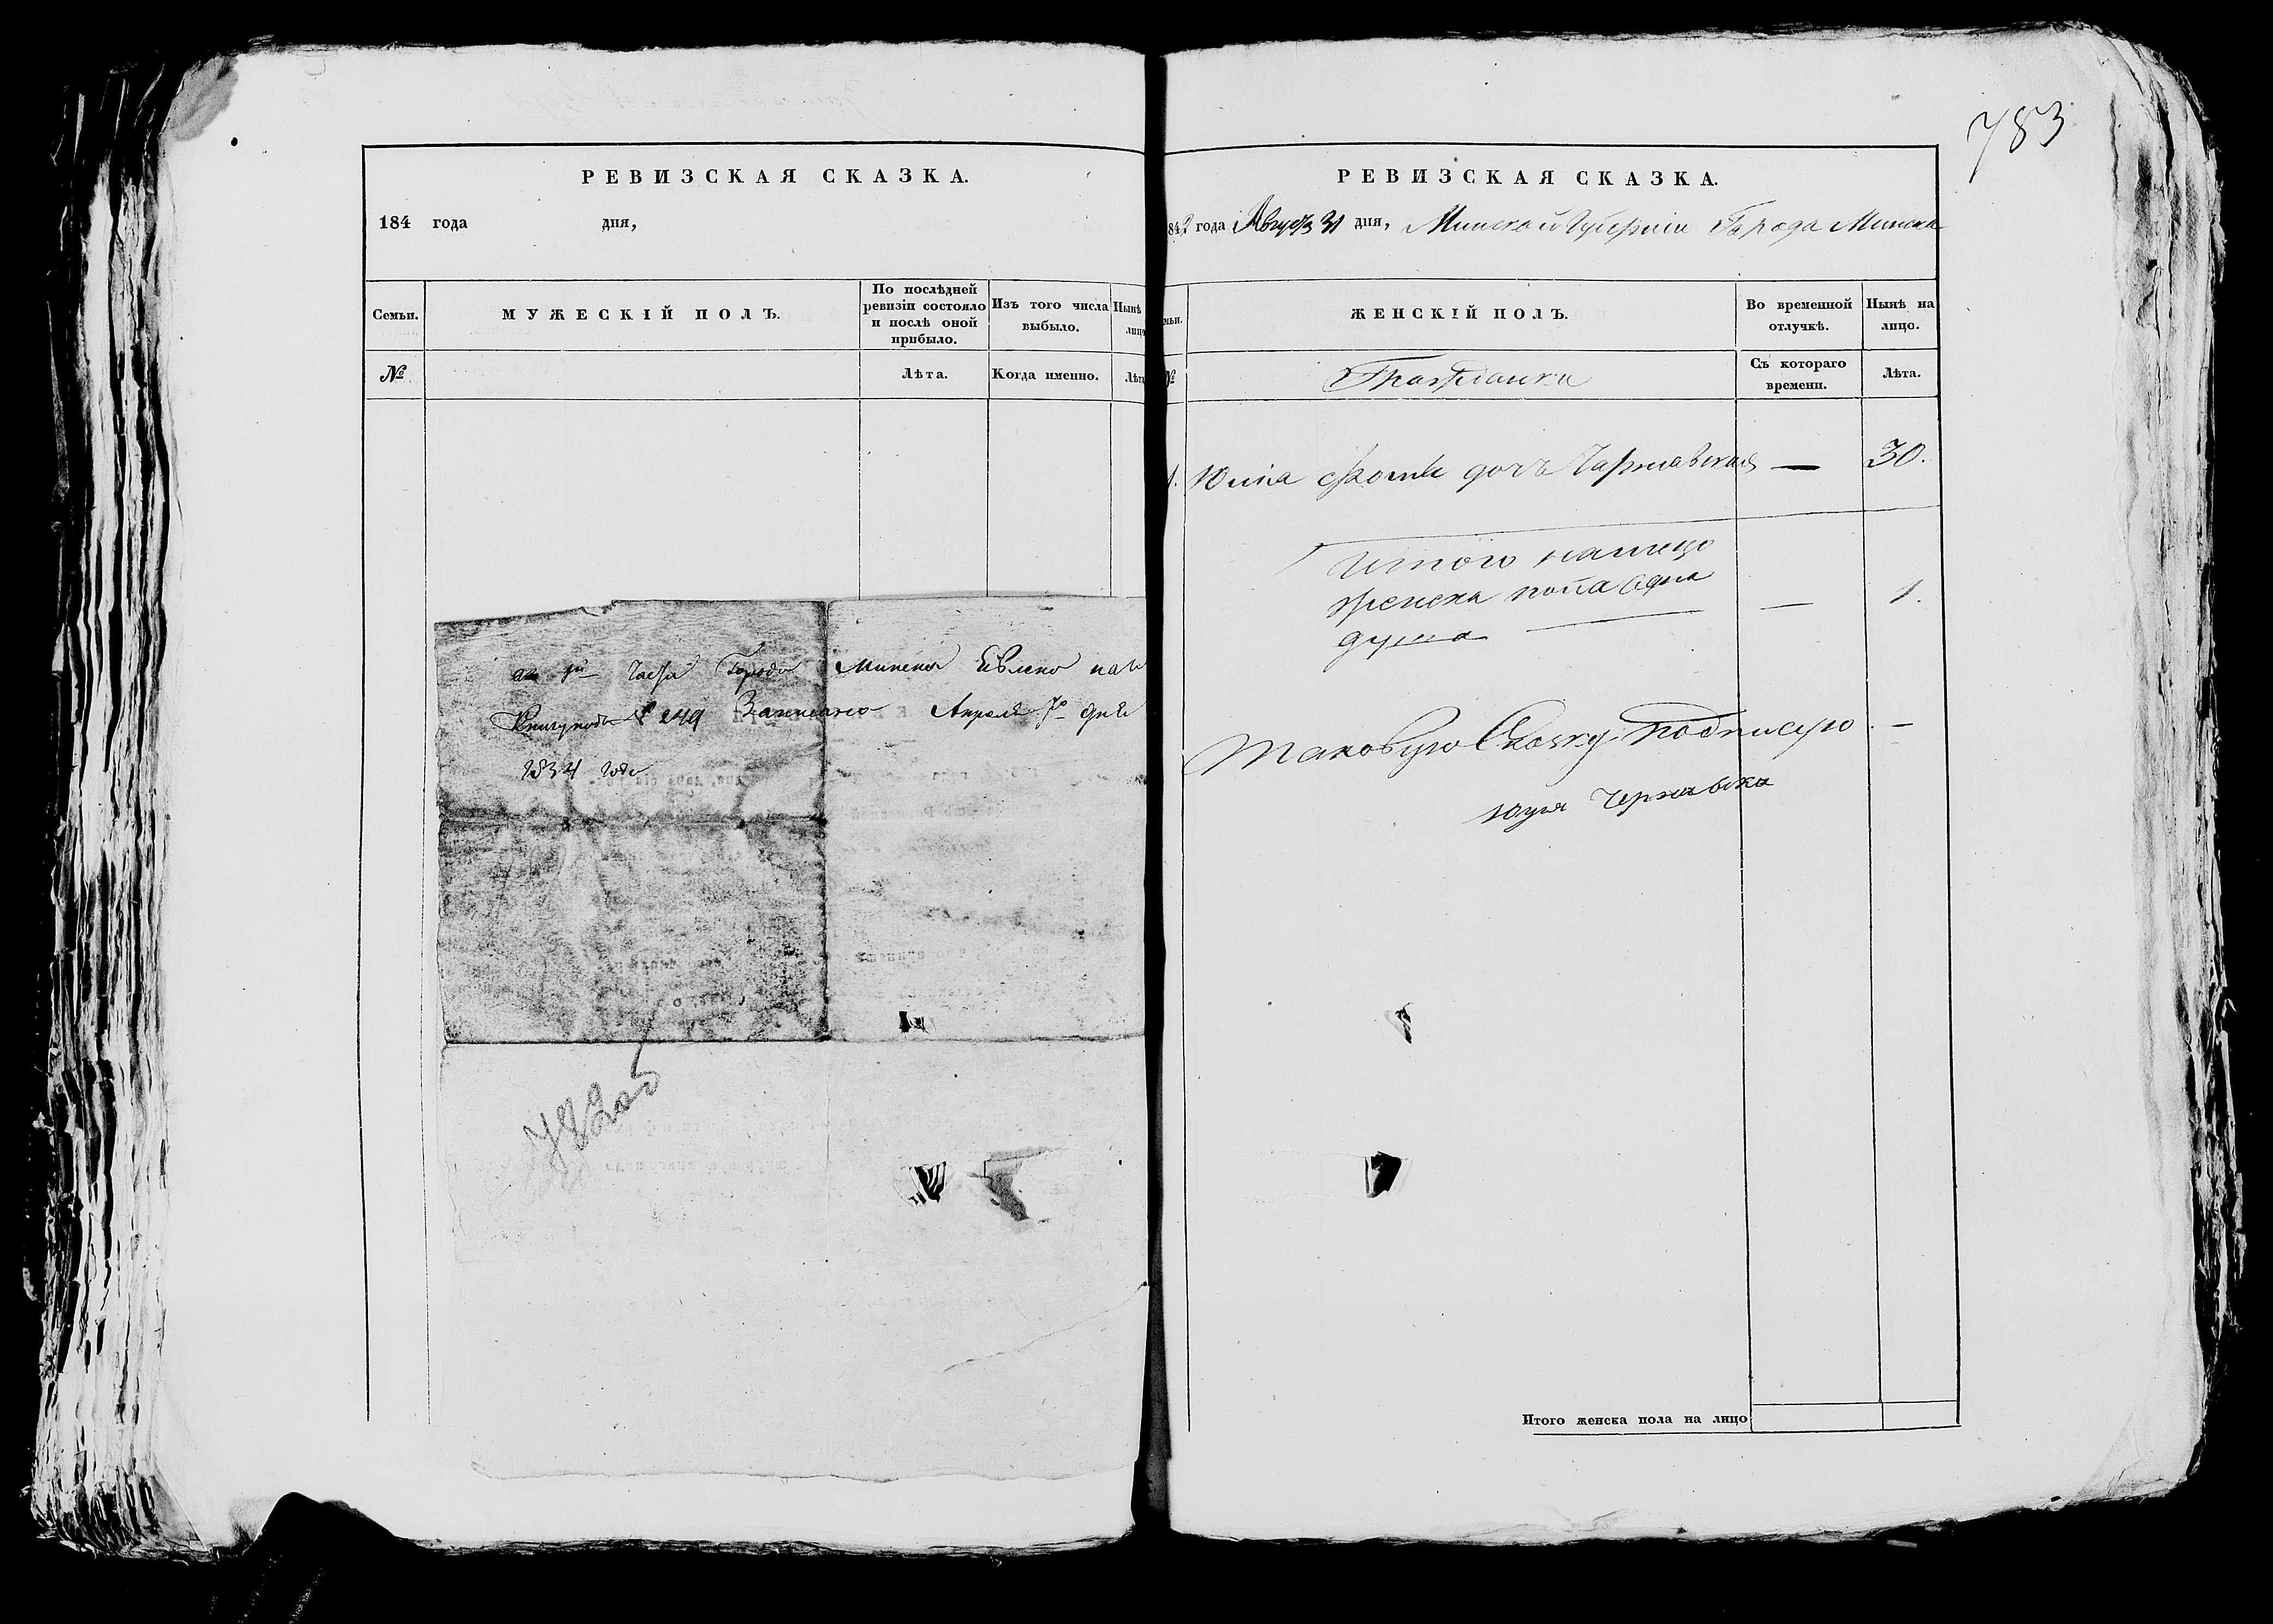 РЕВИЗСКАЯ СКАЗКА.
184 года дня,
Семьи.
МУЖЕСКІЙ ПОЛЪ.
По послѣдней ревизіи состояло и послѣ оной прибыло.
Изъ того числа выбыло.
Нынѣ
лицо
№
Лѣта.
Когда именно.
Лѣта
части Города Минска Явлено
№ 249 Записано Апреля 7го дня
1834 года
782об
783
РЕВИЗСКАЯ СКАЗКА.
842 года Августа 31 дня, Минской Губерніи Города Минска
мьи.
ЖЕНСКІЙ ПОЛЪ.
Во временной отлучкѣ.
Нынѣ на лицо.
№
Гражданки
Съ котораго времени.
Лѣта.
1. Юлія дочь Чарнявская — 30.
Итого налицо
женска пола одна — 1.
душа
Таковую Сказку подписую. —
Юлія Чернявска
Итого женска пола на лицо